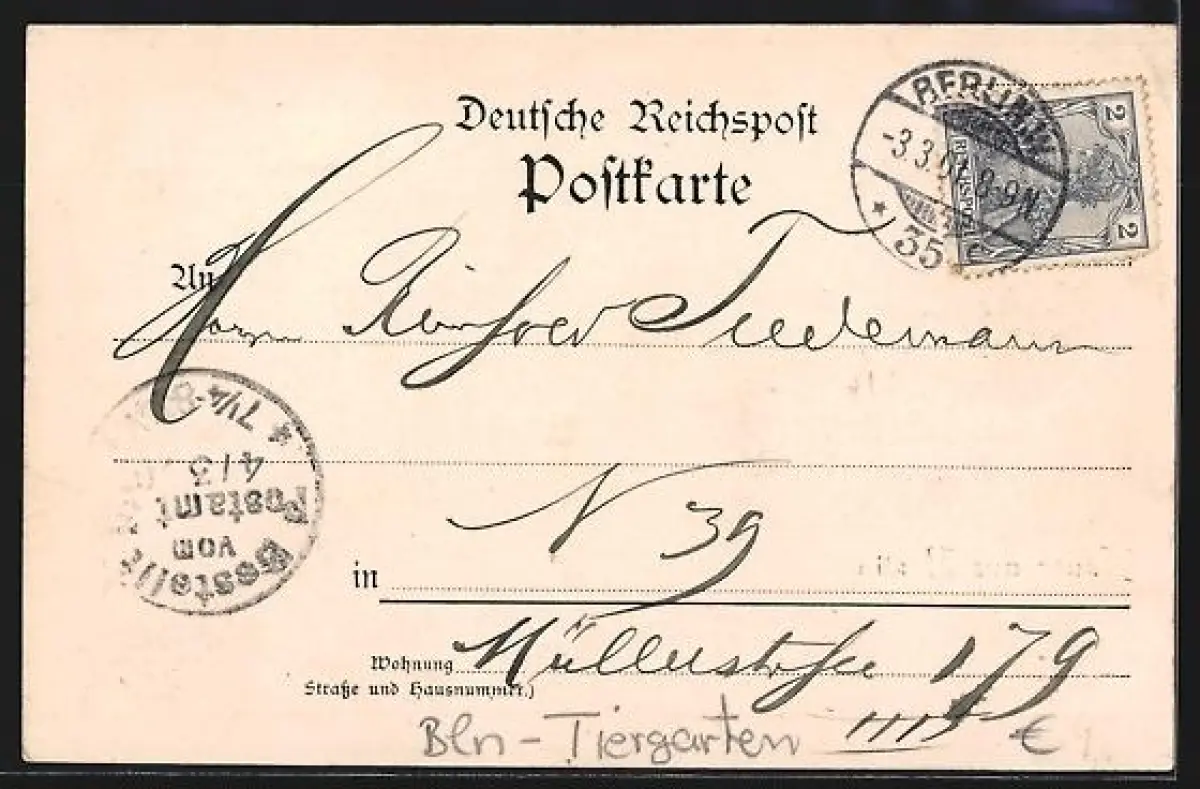 Deutsche Reichspost
Postkarte
BERLIN.W.
-3.3.02. 8-9N.
* 35
2
REICHSPOST
2
An
Herrn Reinhold Tiedemann
7¼-8
4/3
Postamt
vom
Bestellt
in N 39
Wohnung Müllerstraße 179
(Straße und Hausnummer.)
Bln - Tiergarten €